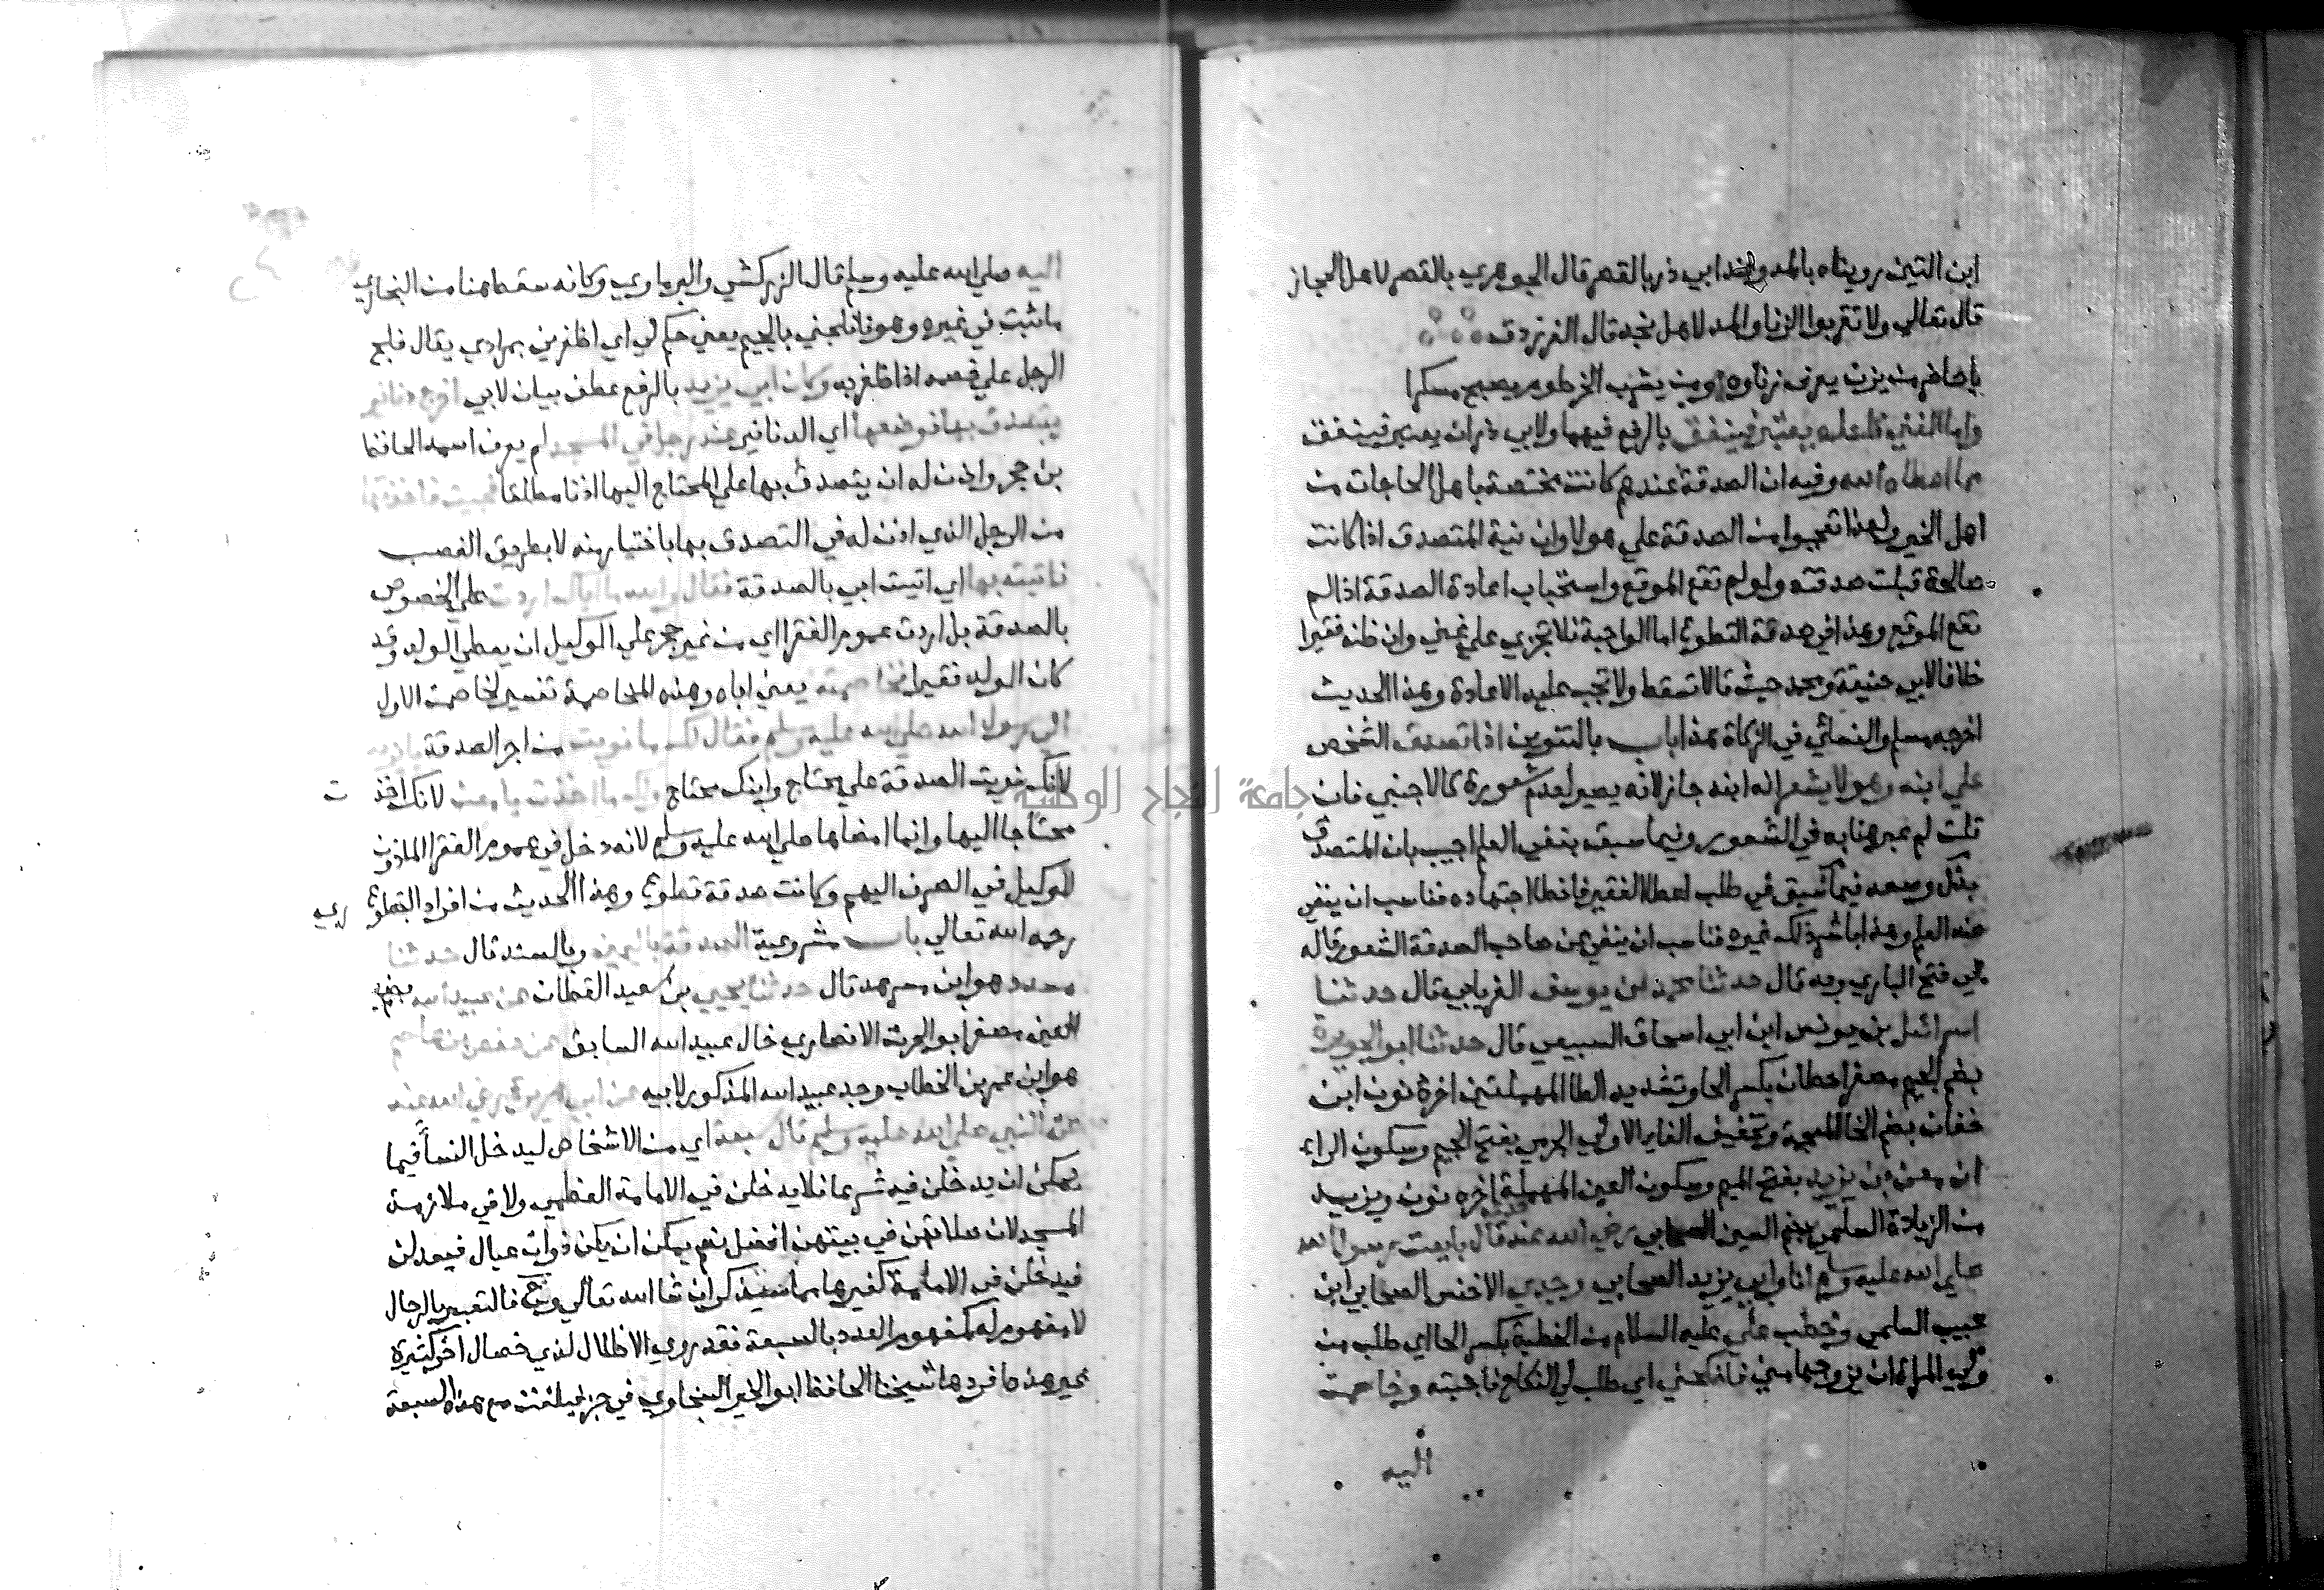 ابن التين رويناه بالمد وعند ابي ذر بالقصر قال الجوهري بالقصر لاهل الحجاز
قال تعالي ولا تقربوا الزنا والمد لاهل نجد قال الفرزدق
اباحاضر من يزن يعرف زناوه ومن يشرب الخرطوم يصبح مسكرا
واما الغني فلعله يعتبر فينفق بالرفع فيهما ولابي ذر ان يعتبر فينفق
مما اعطاه الله وفيه ان الصدقة عندهم كانت مختصة باهل الحاجات من
اهل الخير ولهذا تعجبوا من الصدقة علي هولا وان نية المتصدق اذا كانت
صالحة قبلت صدقته ولو لم تقع الموقع واستحباب اعادة الصدقة اذا لم
تقع الموقع وهذا في صدقة التطوع اما الواجبة فلا تجزي علي غني وان ظنه فقيرا
خلافا لابي حنيفة ومحمد حيث قالا تسقط ولا تجب عليه الاعادة وهذا الحديث
اخرجه مسلم والنسائي في الزكاة هذا باب بالتنوين اذا تصدق الشخص
علي ابنه وهو لا يشعر انه ابنه جاز لانه يصير لعدم شعوره كالاجنبي فان
قلت لم عبر هنا به في الشعور وفيما سبق بنفي العلم اجيب بان المتصدق
بذل وسعه فيما سبق في طلب اعطا الفقير فاخطا اجتهاده فناسب ان ينفي
عنه العلم وهذا باشر ذلك غيره فناسب ان ينفي عن صاحب الصدقة الشعور قاله
في فتح الباري وبه قال حدثنا محمد بن يوسف الفريابي قال حدثنا
اسرائيل بن يونس ابن ابي اسحاق السبيعي قال حدثنا ابو الجويرية
بضم الجيم مصغرا حطان بكسر الحا وتشديد الطا المهملتين اخره نون ابن
خفاف بضم الخا المعجمة وتخفيف الفاء الاولي الجرمي بفتح الجيم وسكون الراء
ان معن بن يزيد بفتح الميم وسكون العين المهملة اخره نون ويزيد
من الزيادة السلمي بضم السين الصحابي رضي الله عنه حدثه قال بايعت رسول الله
صلي الله عليه وسلم انا وابي يزيد الصحابي وجدي الاخنس الصحابي ابن
حبيب السلمي وخطب علي عليه السلام من الخطبة بكسر الخا اي طلب من
ولي المراة ان يزوجها مني فانكحني اي طلب لي النكاح فاجبته وخاصمت
اليه
اليه صلي الله عليه وسلم قال الزركشي والبرماوي وكانه سقط هنا من البخاري
ما ثبت في غيره وهو فافلجني بالجيم يعني حكم لي اي اظفرني بمرادي يقال فلج
الرجل علي خصمه اذا ظفر به وكان ابي يزيد بالرفع عطف بيان لابي اخرج دنانير
يتصدق بها فوضعها اي الدنانير عند رجل في المسجد لم يعرف اسمه الحافظ
بن حجر واذن له ان يتصدق بها علي المحتاج اليها اذنا مطلقا فجيت فاخذتها
من الرجل الذي اذن له في التصدق بها باختيار منه لا بطريق الغصب
فاتيته بها اي اتيت ابي بالصدقة فقال والله ما اياك اردت علي الخصوص
بالصدقة بل اردت عموم الفقرا اي من غير حجر علي الوكيل ان يعطي الولد وقد
كان الولد فقيرا فخاصمته يعني اباه وهذه المخاصمة تفسير لخاصمت الاول
الي رسول الله صلي الله عليه وسلم فقال لك ما نويت من اجر الصدقة يا يزيد
لانك نويت الصدقة علي محتاج وابنك محتاج ولك ما اخذت يا معن لانك اخذت
محتاجا اليها وانما امضاها صلي الله عليه وسلم لانه دخل في عموم الفقرا الماذون
للوكيل في الصرف اليهم وكانت صدقة تطوع وهذا الحديث من افراد البخاري
رحمه الله تعالي باب مشروعية الصدقة باليمين وبالسند قال حدثنا
مسدد هو ابن مسرهد قال حدثنا يحيي بن سعيد القطان عن عبيد الله بضم
العين مصغرا بو الحرث الانصاري خال عبيد الله السابق عن حفص بن عاصم
هو ابن عمر بن الخطاب وجد عبيد الله المذكور لابيه عن ابي هريرة رضي الله عنه
عن النبي صلي الله عليه وسلم قال سبعة اي من الاشخاص ليدخل النسا فيما
يمكن ان يدخلن فيه شرعا فلا يدخلن في الامامة العظمي ولا في ملازمة
المسجد لان صلاتهن في بيتهن افضل نعم يمكن ان يكن ذوات عيال فيعدلن
فيدخلن في الامامة كغيرها مما سيذكر ان شا الله تعالي وح فالتعبير بالرجال
لا مفهوم له كمفهوم العدد بالسبعة فقد روي الاظلال لذي خصال اخر كثيرة
غير هذه افردها شيخنا الحافظ ابو الخير السخاوي في جز فبلغت مع هذه السبعة